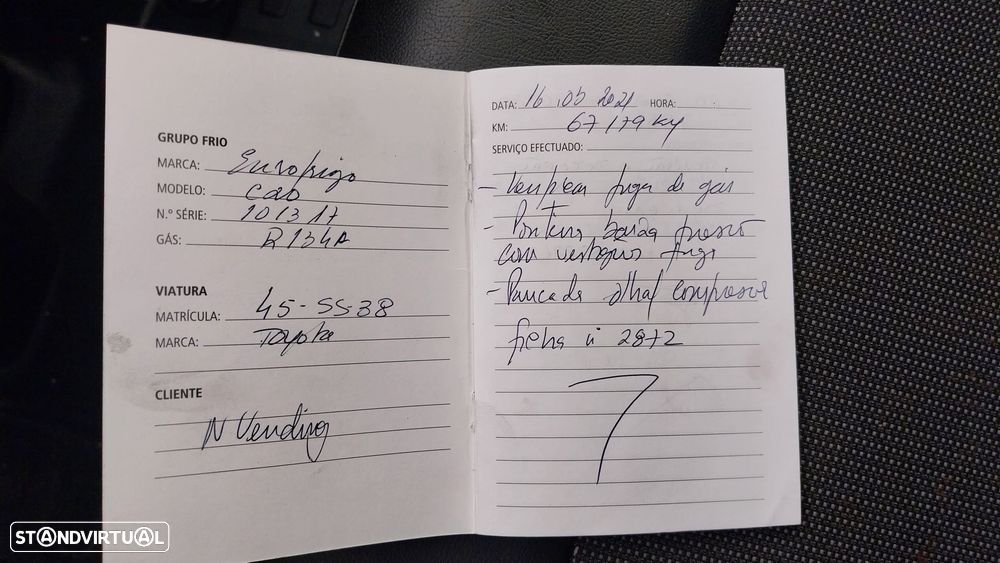 GRUPO FRIO
MARCA: Eurofrigo
MODELO: CAO
N.º SÉRIE: 101317
GÁS: R134A
VIATURA
MATRÍCULA: 45-SS-38
MARCA: Toyota
CLIENTE
N Vending
DATA: 16.05 2021 HORA: :
KM: 67179 KM
SERVIÇO EFECTUADO:
- fuga de gás
- Ponteira baixa
com vestígios fuga
- compressor
ficha nº 2872
STANDVIRTUAL